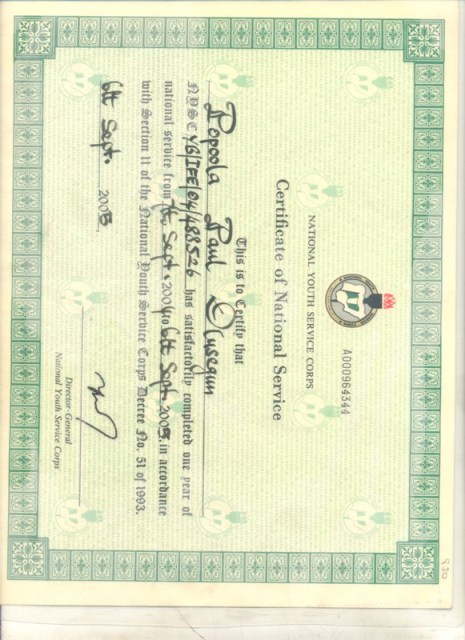 A000964344
NATIONAL YOUTH SERVICE CORPS
Certificate of National Service
This is to Certify that
Popoola Paul Olusegun
NYSC has satisfactorily completed one year of
national service from 7th Sept. 2004 to 6th Sept. 2005, in accordance
with Section 11 of the National Youth Service Corps Decree No. 51 of 1993.
6th Sept. 2005.
Director-General
National Youth Service Corps